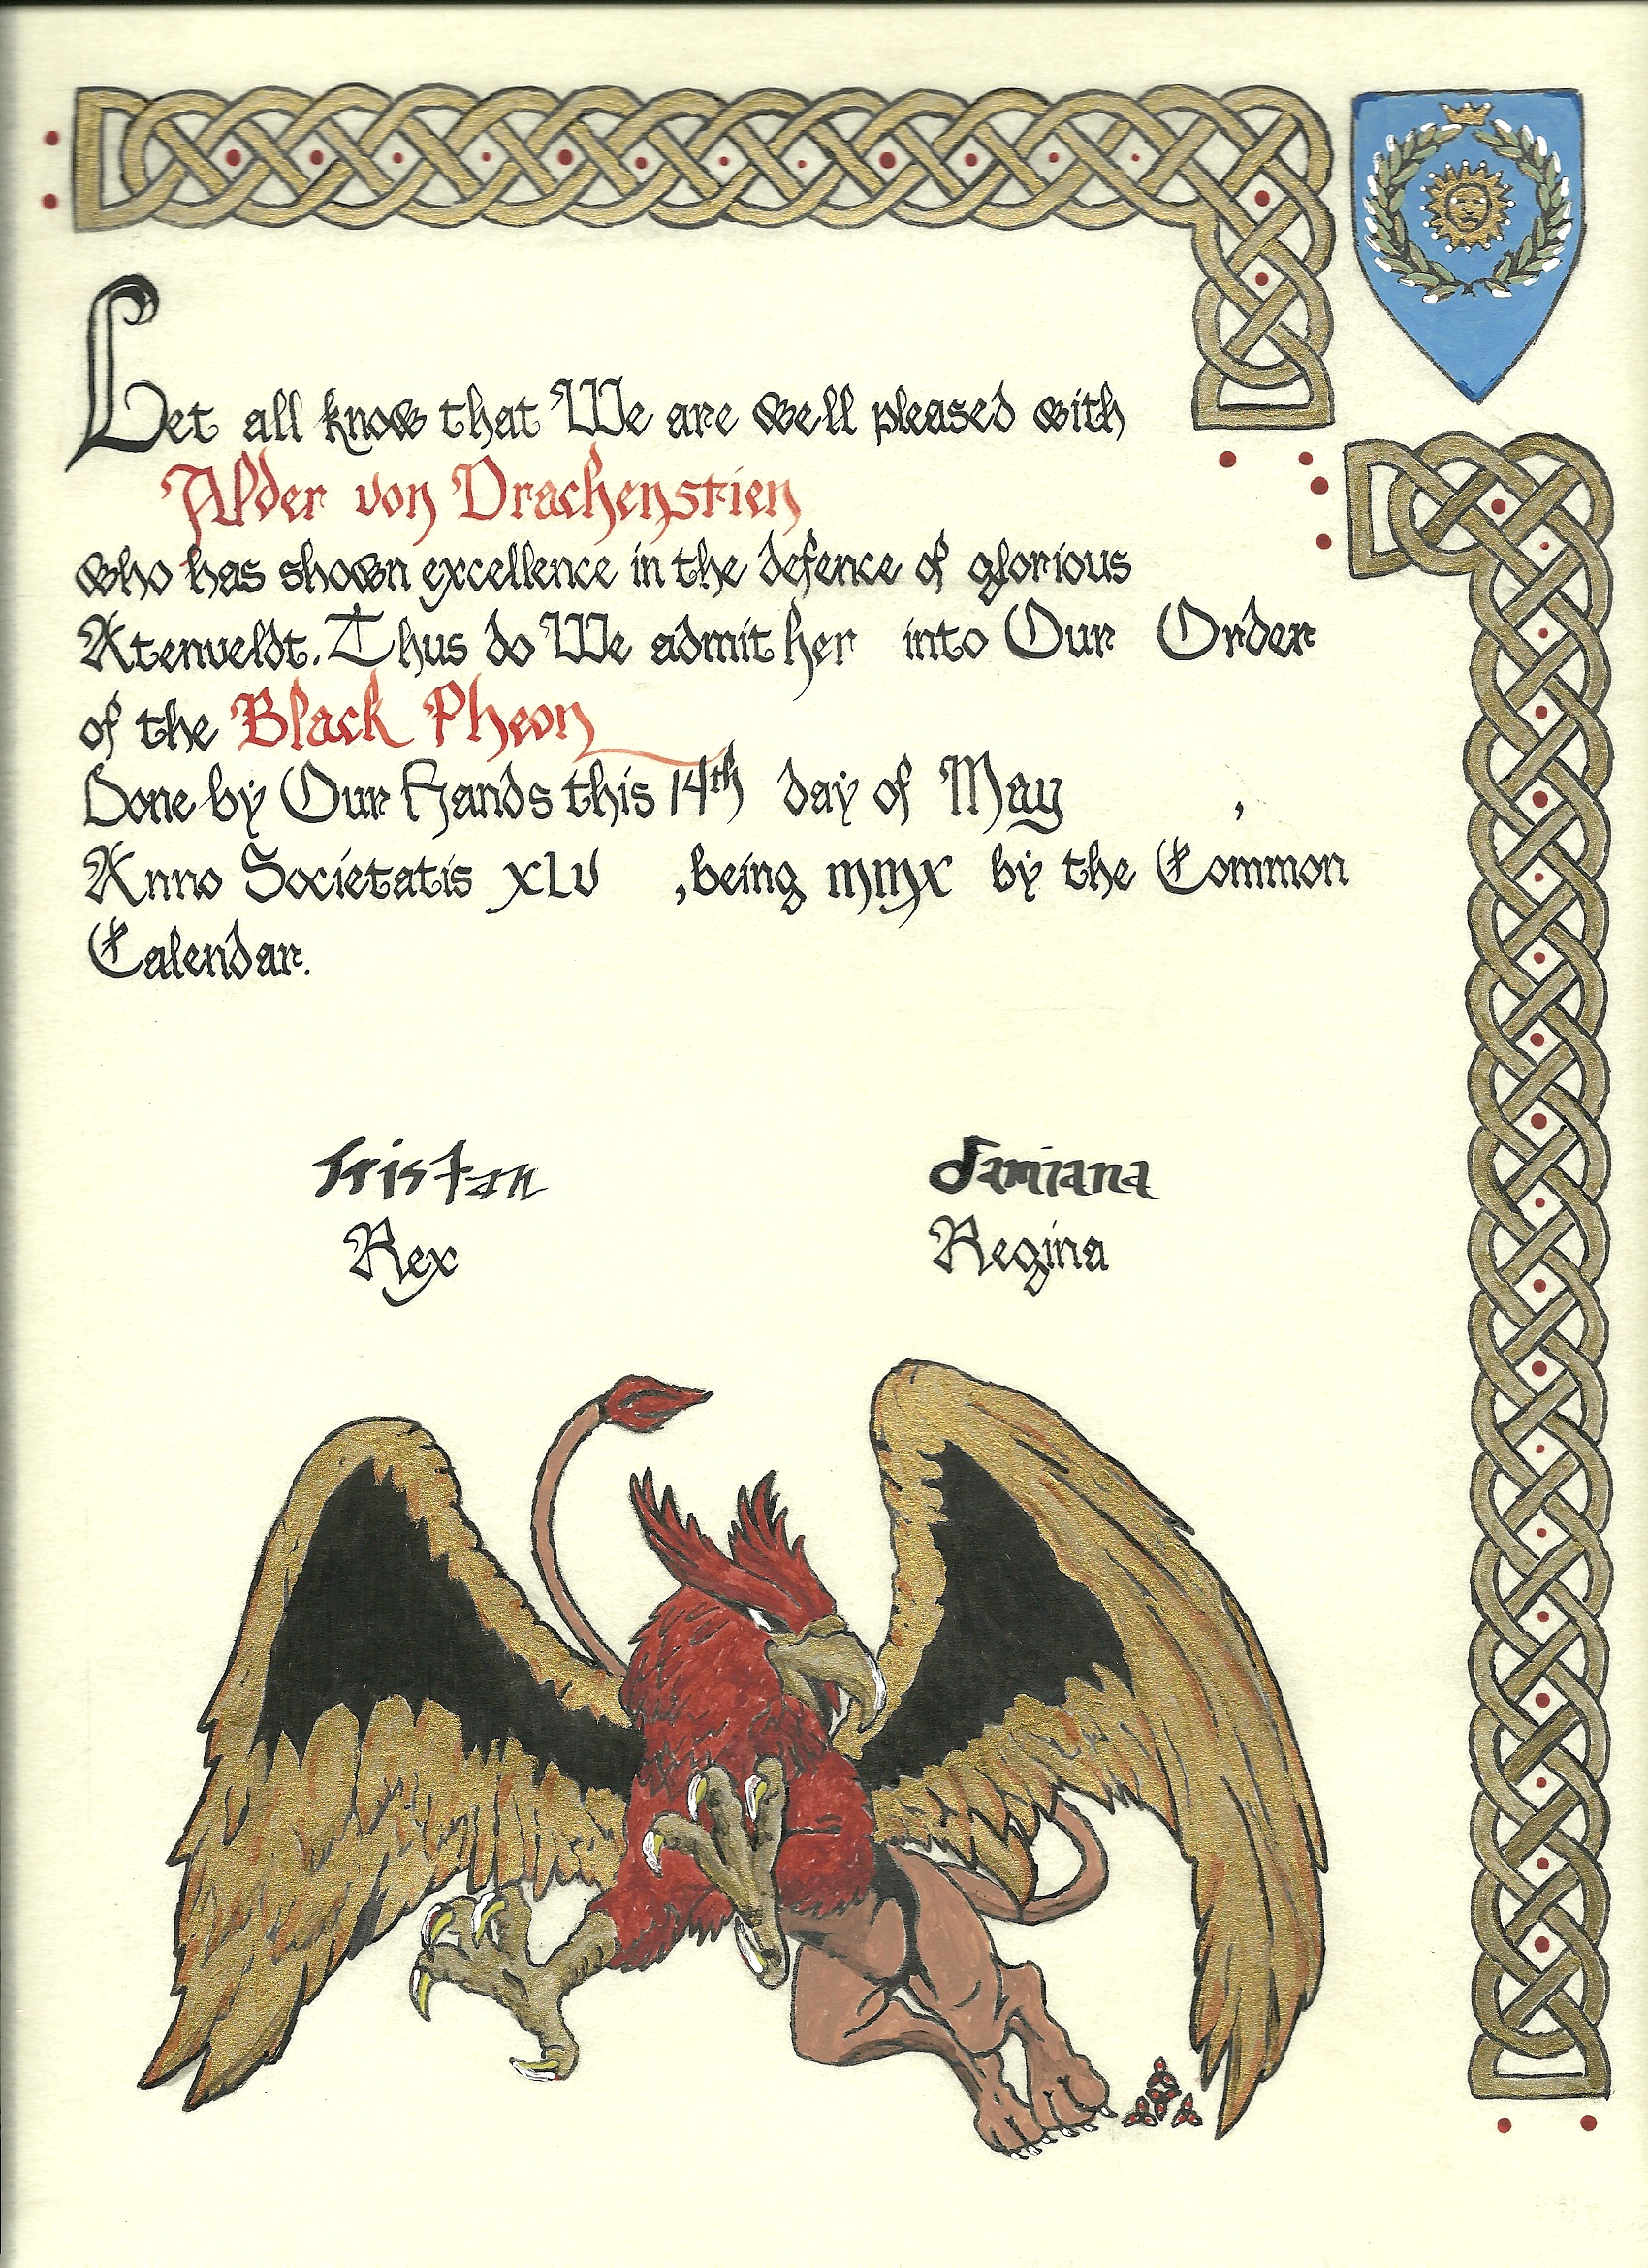 Let all know that We are well pleased with
Alder von Drachenstien
who has shown excellence in the defence of glorious
Atenveldt. Thus do We admit her into Our Order
of the Black Pheon
Done by Our Hands this 14th day of May ,
Anno Societatis XLV , being MMX by the Common
Calendar.
Tristan Damiana
Rex Regina